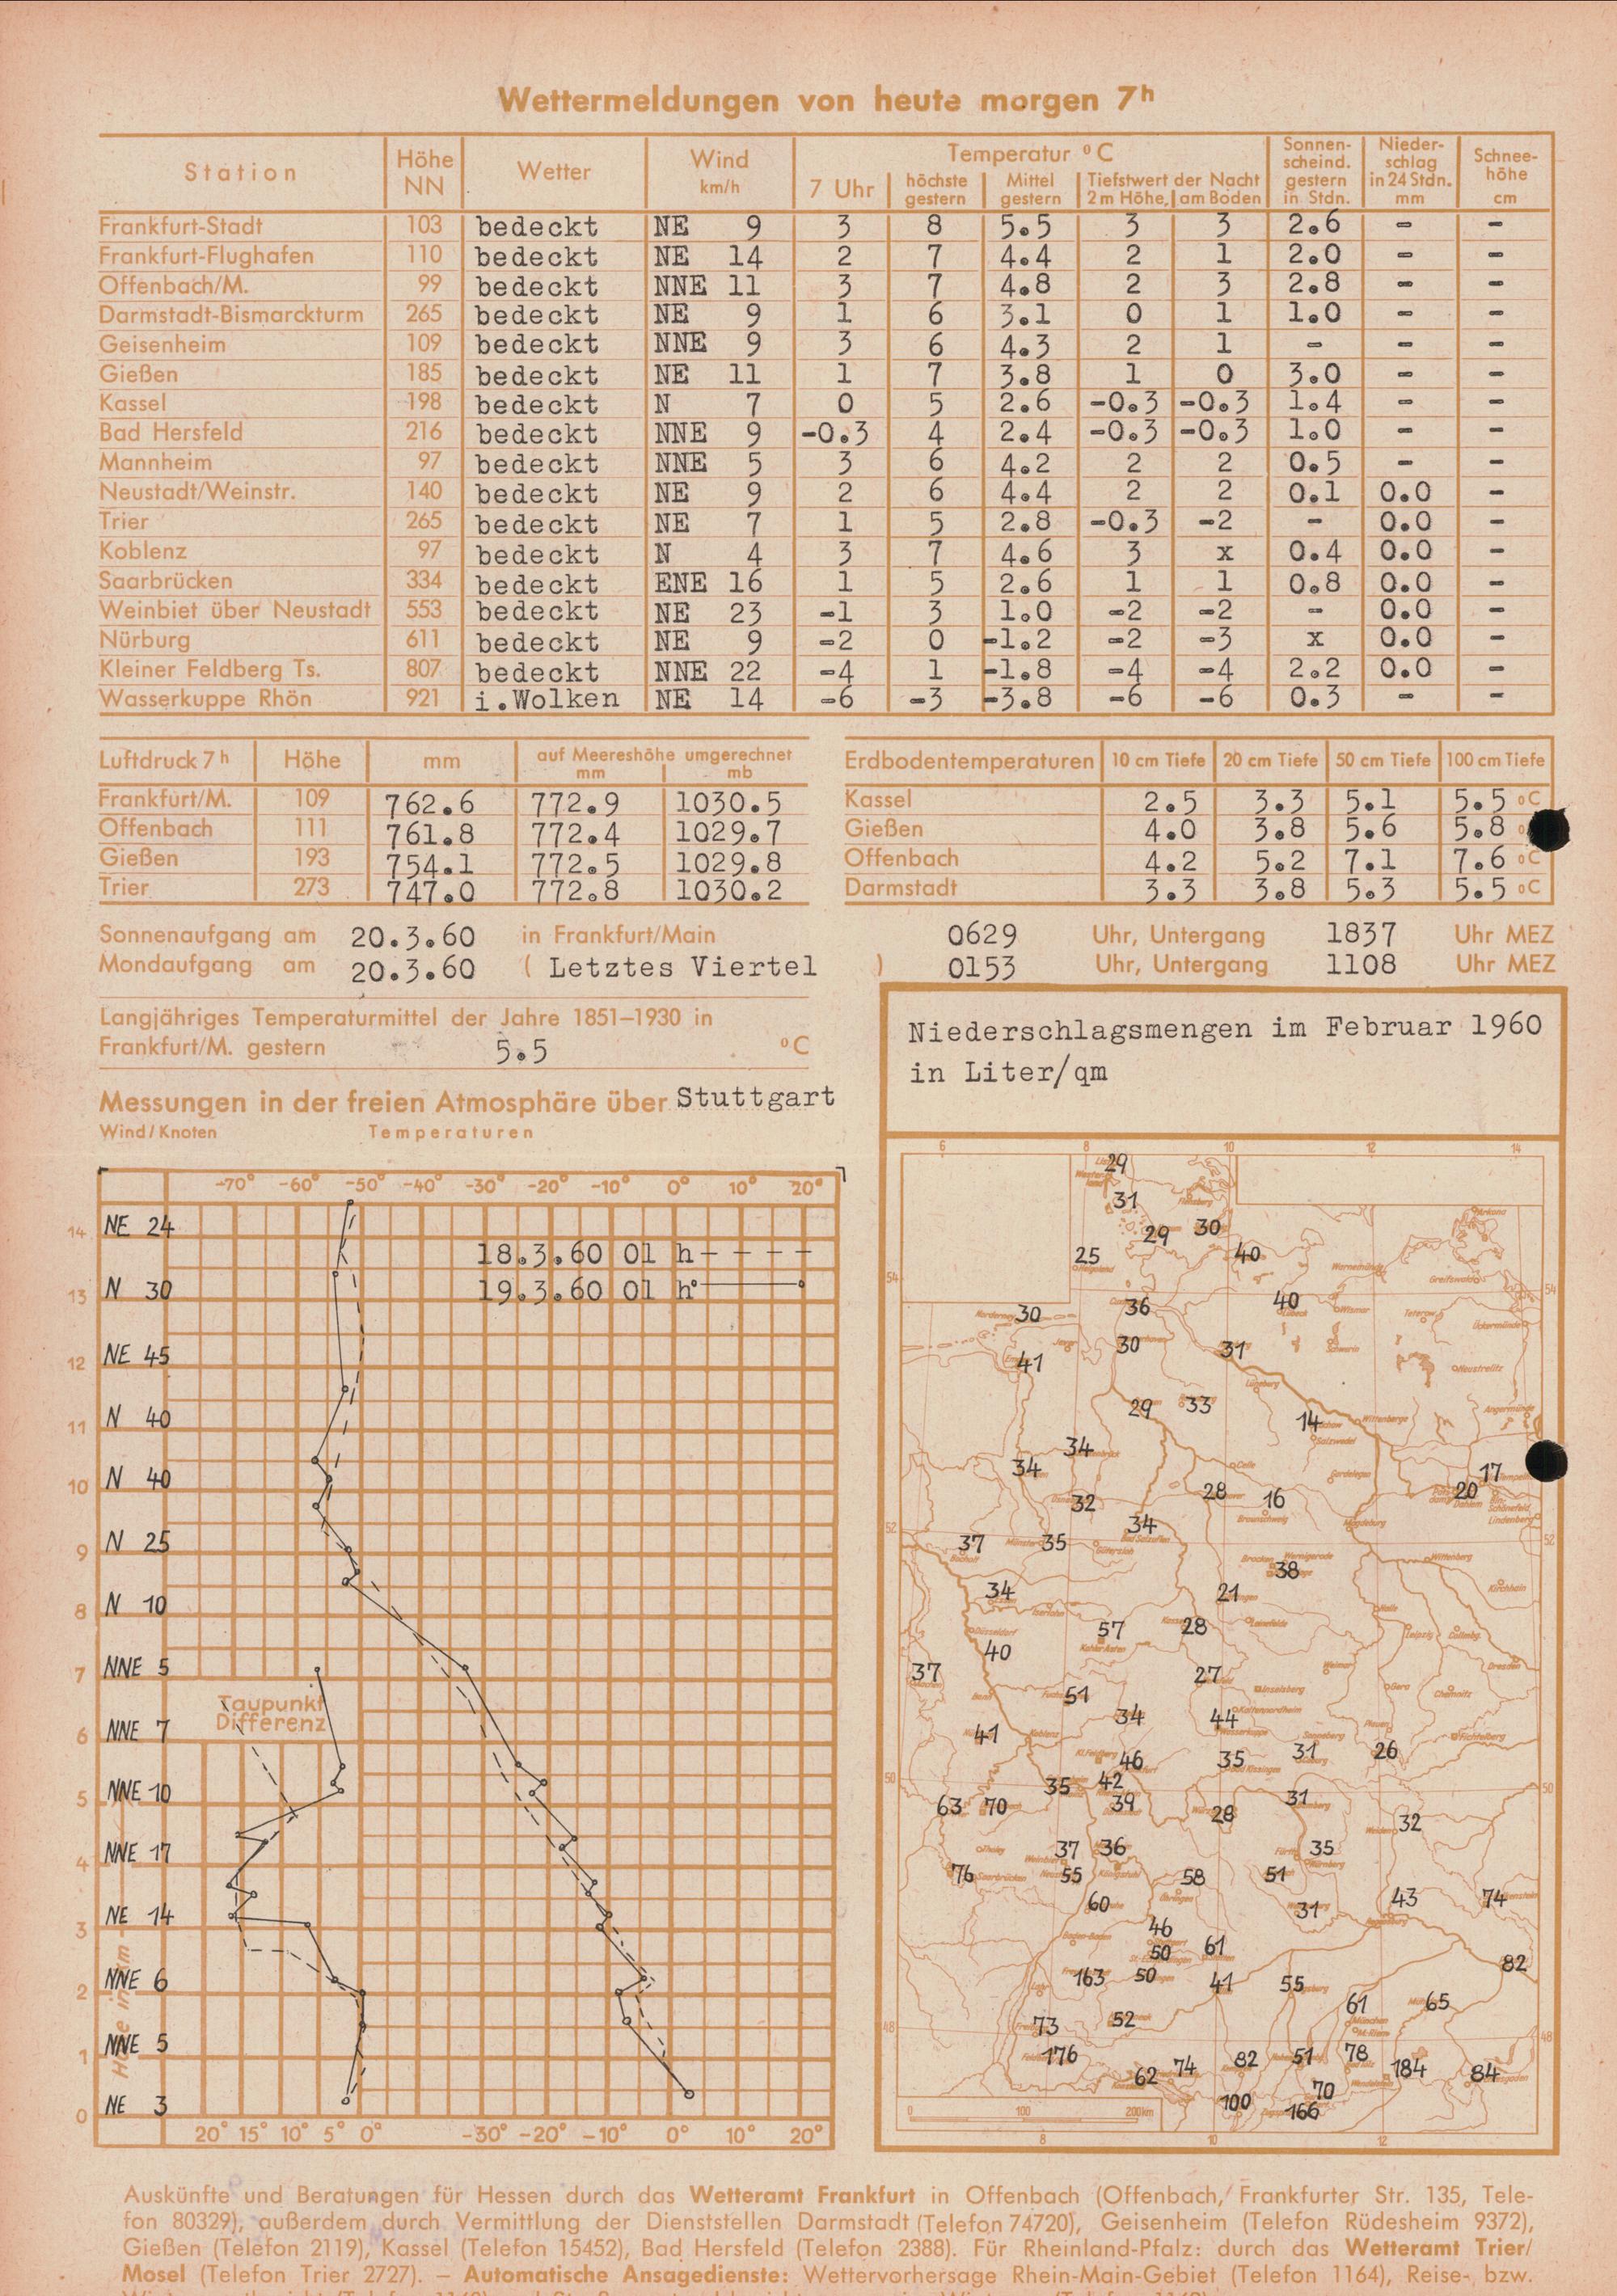 Wettermeldungen von heute morgen 7h
Station Höhe NN Wetter Wind km/h Temperatur °C Sonnenscheind. gestern in Stdn. Niederschlag in 24 Stdn. mm Schneehöhe cm
7 Uhr höchste gestern Mittel gestern Tiefstwert der Nacht 2 m Höhe, am Boden
Frankfurt-Stadt 103 bedeckt NE 9 3 8 5.5 3 3 2.6 - -
Frankfurt-Flughafen 110 bedeckt NE 14 2 7 4.4 2 1 2.0 - -
Offenbach/M. 99 bedeckt NNE 11 3 7 4.8 2 3 2.8 - -
Darmstadt-Bismarckturm 265 bedeckt NE 9 1 6 3.1 0 1 1.0 - -
Geisenheim 109 bedeckt NNE 9 3 6 4.3 2 1 - - -
Gießen 185 bedeckt NE 11 1 7 3.8 1 0 3.0 - -
Kassel 198 bedeckt N 7 0 5 2.6 -0.3 -0.3 1.4 - -
Bad Hersfeld 216 bedeckt NNE 9 -0.3 4 2.4 -0.3 -0.3 1.0 - -
Mannheim 97 bedeckt NNE 5 3 6 4.2 2 2 0.5 - -
Neustadt/Weinstr. 140 bedeckt NE 9 2 6 4.4 2 2 0.1 0.0 -
Trier 265 bedeckt NE 7 1 5 2.8 -0.3 -2 - 0.0 -
Koblenz 97 bedeckt N 4 3 7 4.6 3 x 0.4 0.0 -
Saarbrücken 334 bedeckt ENE 16 1 5 2.6 1 1 0.8 0.0 -
Weinbiet über Neustadt 553 bedeckt NE 23 -1 3 1.0 -2 -2 - 0.0 -
Nürburg 611 bedeckt NE 9 -2 0 -1.2 -2 -3 x 0.0 -
Kleiner Feldberg Ts. 807 bedeckt NNE 22 -4 1 -1.8 -4 -4 2.2 0.0 -
Wasserkuppe Rhön 921 i.Wolken NE 14 -6 -3 -3.8 -6 -6 0.3 - -
Luftdruck 7h Höhe mm auf Meereshöhe umgerechnet mm mb
Frankfurt/M. 109 762.6 772.9 1030.5
Offenbach 111 761.8 772.4 1029.7
Gießen 193 754.1 772.5 1029.8
Trier 273 747.0 772.8 1030.2
Erdbodentemperaturen 10 cm Tiefe 20 cm Tiefe 50 cm Tiefe 100 cm Tiefe
Kassel 2.5 3.3 5.1 5.5 °C
Gießen 4.0 3.8 5.6 5.8
Offenbach 4.2 5.2 7.1 7.6 °C
Darmstadt 3.3 3.8 5.3 5.5 °C
Sonnenaufgang am 20.3.60 in Frankfurt/Main 0629 Uhr, Untergang 1837 Uhr MEZ
Mondaufgang am 20.3.60 ( Letztes Viertel ) 0153 Uhr, Untergang 1108 Uhr MEZ
Langjähriges Temperaturmittel der Jahre 1851–1930 in
Frankfurt/M. gestern 5.5 °C
Messungen in der freien Atmosphäre über Stuttgart
Wind/Knoten Temperaturen
-70° -60° -50° -40° -30° -20° -10° 0° 10° 20°
14 NE 24
18.3.60 01 h - - - -
13 N 30
19.3.60 01 h
12 NE 45
11 N 40
10 N 40
9 N 25
8 N 10
7 NNE 5
Taupunkt
Differenz
6 NNE 7
5 NNE 10
4 NNE 17
3 NE 14
2 NNE 6
1 NNE 5
0 NE 3
Höhe in km
20° 15° 10° 5° 0° -30° -20° -10° 0° 10° 20°
Niederschlagsmengen im Februar 1960
in Liter/qm
6 8 10 12 14
29
31
29 30
25 40
54 54
30 36 40
30 31
41
29 33
14
34
34 17
32 28 16 20
34
52 52
37 35
38
34 21
57 28
40
37 27
51
34 44
41
46 35 31 26
50 50
35 42
63 70 39 28 31
32
37 36 35
76 55 58 51
60 31 43 74
46
50 61
163 50 41 55 82
61 65
73 52
48 48
176 82 51 78
62 74 184 84
100 70
166
0 100 200km
8 10 12
Auskünfte und Beratungen für Hessen durch das Wetteramt Frankfurt in Offenbach (Offenbach, Frankfurter Str. 135, Tele-
fon 80329), außerdem durch Vermittlung der Dienststellen Darmstadt (Telefon 74720), Geisenheim (Telefon Rüdesheim 9372),
Gießen (Telefon 2119), Kassel (Telefon 15452), Bad Hersfeld (Telefon 2388). Für Rheinland-Pfalz: durch das Wetteramt Trier/
Mosel (Telefon Trier 2727). — Automatische Ansagedienste: Wettervorhersage Rhein-Main-Gebiet (Telefon 1164), Reise- bzw.